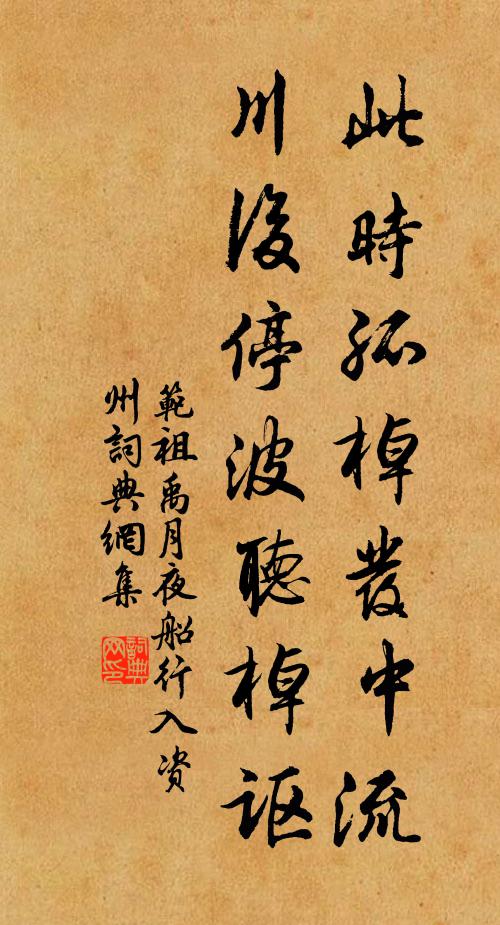 此時孤棹發中流
川後停波聽棹謳
範祖禹月夜船行入資
州詞典網集
詞典
网印